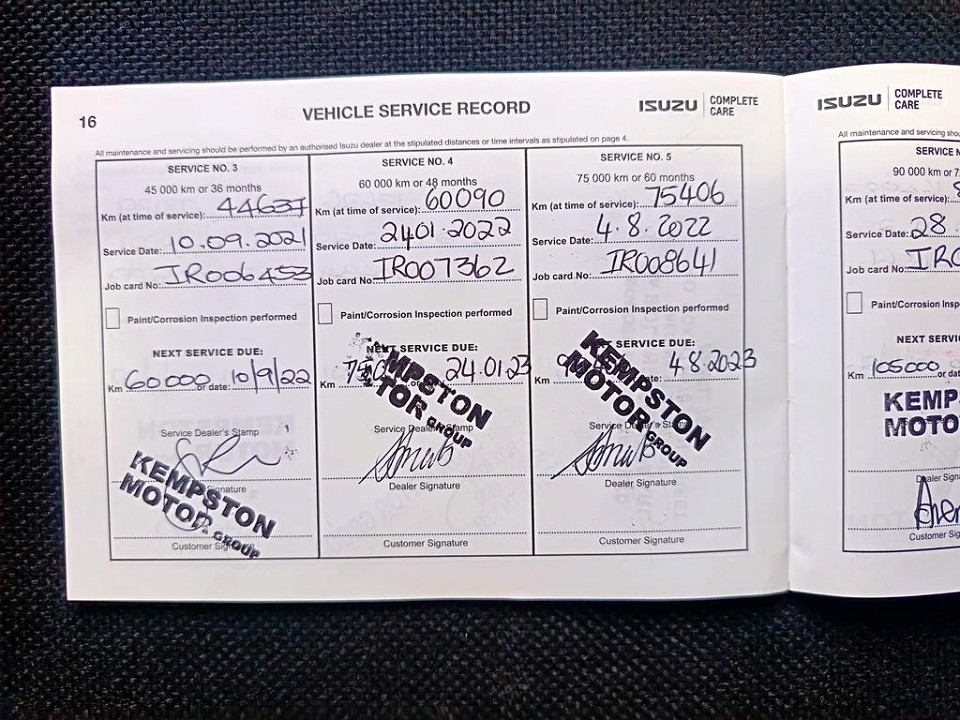 16
VEHICLE SERVICE RECORD
ISUZU COMPLETE CARE
All maintenance and servicing should be performed by an authorised Isuzu dealer at the stipulated distances or time intervals as stipulated on page 4.
SERVICE NO. 3
45 000 km or 36 months
Km (at time of service): 44637
Service Date: 10.09.2021
Job card No: IR006453
Paint/Corrosion Inspection performed
NEXT SERVICE DUE:
Km 60000 or date: 10/9/22
Service Dealer's Stamp
KEMPSTON
MOTOR GROUP
Customer
SERVICE NO. 4
60 000 km or 48 months
Km (at time of service): 60090
Service Date: 2401.2022
Job card No: IR007362
Paint/Corrosion Inspection performed
NEXT SERVICE DUE:
Km 24.01.23
Service
GROUP
Dealer Signature
Customer Signature
SERVICE NO. 5
75 000 km or 60 months
Km (at time of service): 75406
Service Date: 4.8.2022
Job card No: IR008641
Paint/Corrosion Inspection performed
SERVICE DUE:
Km 4.8.2023
KEMPSTON
MOTOR GROUP
Service
Dealer Signature
Customer Signature
ISUZU COMPLETE CARE
All maintenance and servicing
SERVICE
90 000 km or
Km (at time of service):
Service Date: 28
Job card No:
Paint/Corrosion
NEXT
Km 105000 or